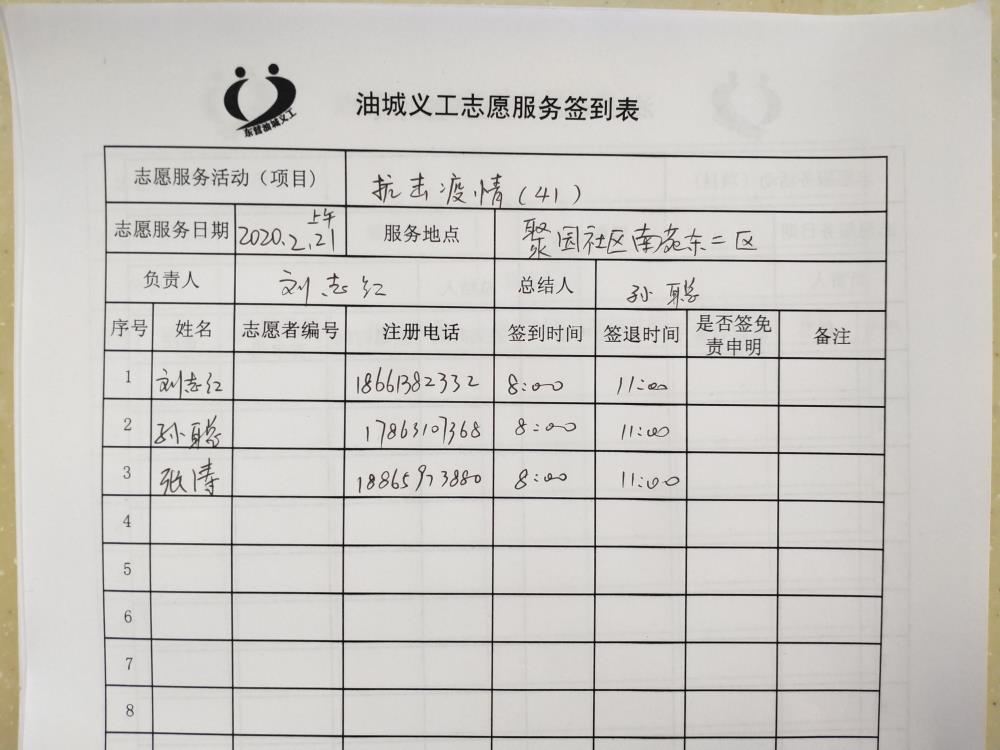 东营油城义工
油城义工志愿服务签到表
志愿服务活动（项目） 抗击疫情（41）
志愿服务日期 2020.2.21 上午 服务地点 聚园社区南苑东二区
负责人 刘志红 总结人 孙聪
序号 姓名 志愿者编号 注册电话 签到时间 签退时间 是否签免责申明 备注
1 刘志红 18661382332 8:00 11:00
2 孙聪 17863107368 8:00 11:00
3 张涛 18865973880 8:00 11:00
4
5
6
7
8